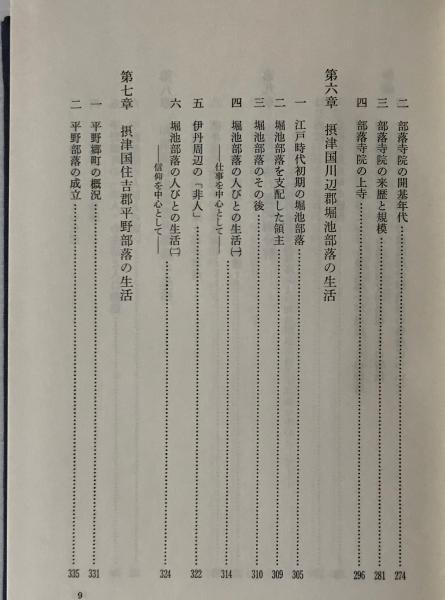 二　部落寺院の開基年代……274
三　部落寺院の来歴と規模……281
四　部落寺院の上寺……296
第六章　摂津国川辺郡堀池部落の生活
一　江戸時代初期の堀池部落……305
二　堀池部落を支配した領主……309
三　堀池部落のその後……310
四　堀池部落の人びとの生活㈠……314
――仕事を中心として――
五　伊丹周辺の「非人」……322
六　堀池部落の人びとの生活㈡……324
――信仰を中心として――
第七章　摂津国住吉郡平野部落の生活
一　平野郷町の概況……331
二　平野部落の成立……335
9